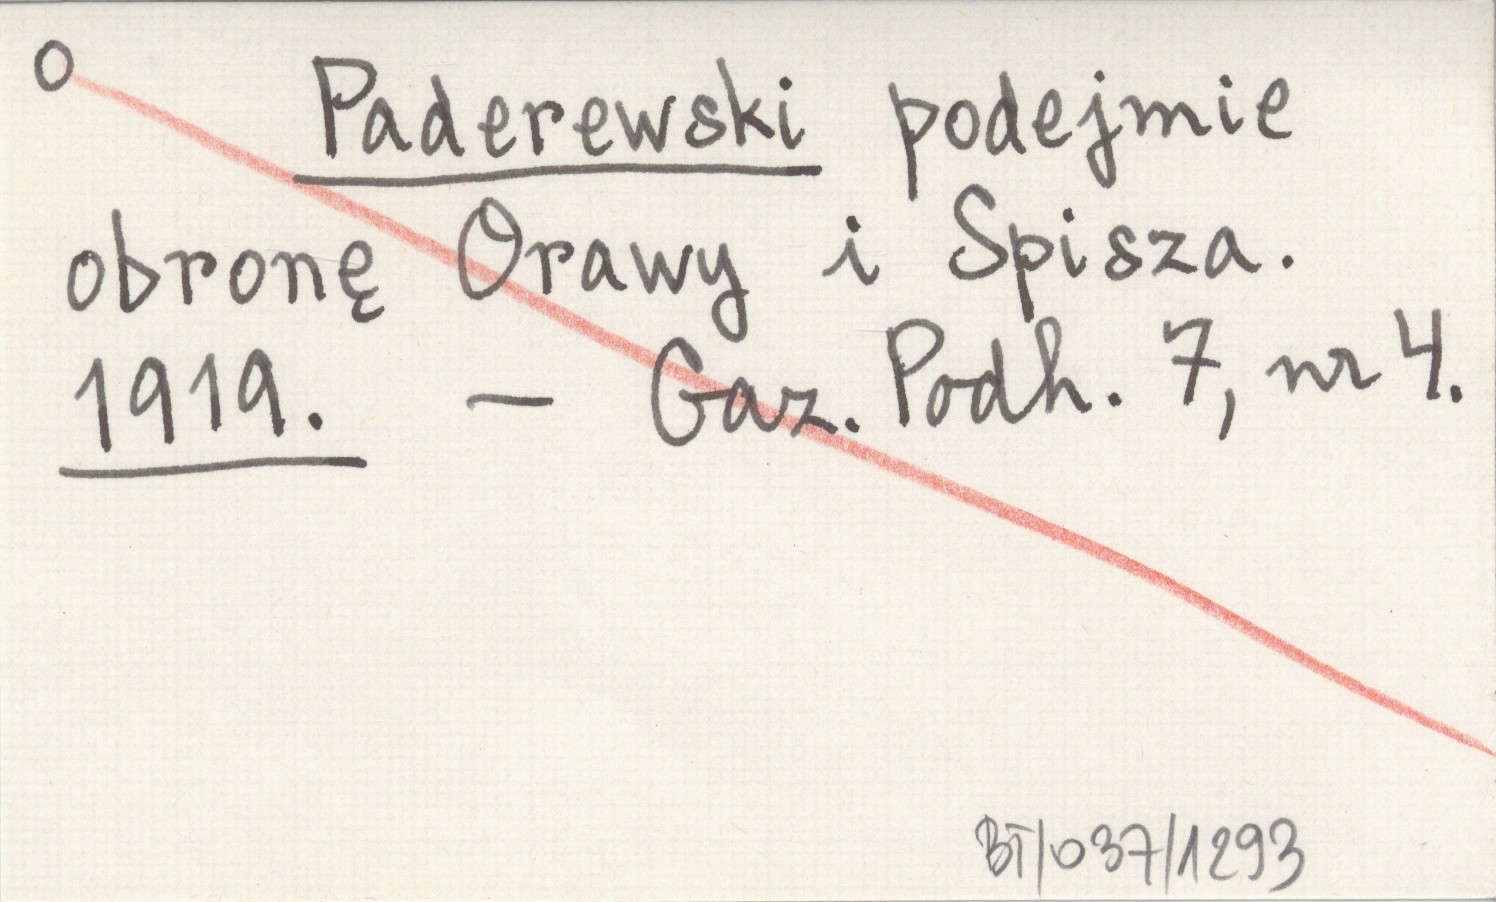 O
Paderewski podejmie
obronę Orawy i Spisza.
1919. — Gaz. Podh. 7, nr 4.
BT/037/1293